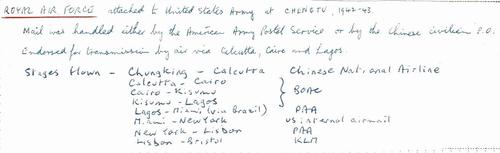 ROYAL AIR FORCE attached to United States Army at CHENGTU, 1942-43.
Mail was handled either by the American Army Postal Service or by the Chinese civilian P.O.
Endorsed for transmission by air via Calcutta, Cairo and Lagos.
Stages flown - Chungking - Calcutta Chinese National Airline
Calcutta - Cairo
Cairo - Kisumu BOAC
Kisumu - Lagos
Lagos - Miami (via Brazil) PAA
Miami - New York US internal airmail
New York - Lisbon PAA
Lisbon - Bristol KLM